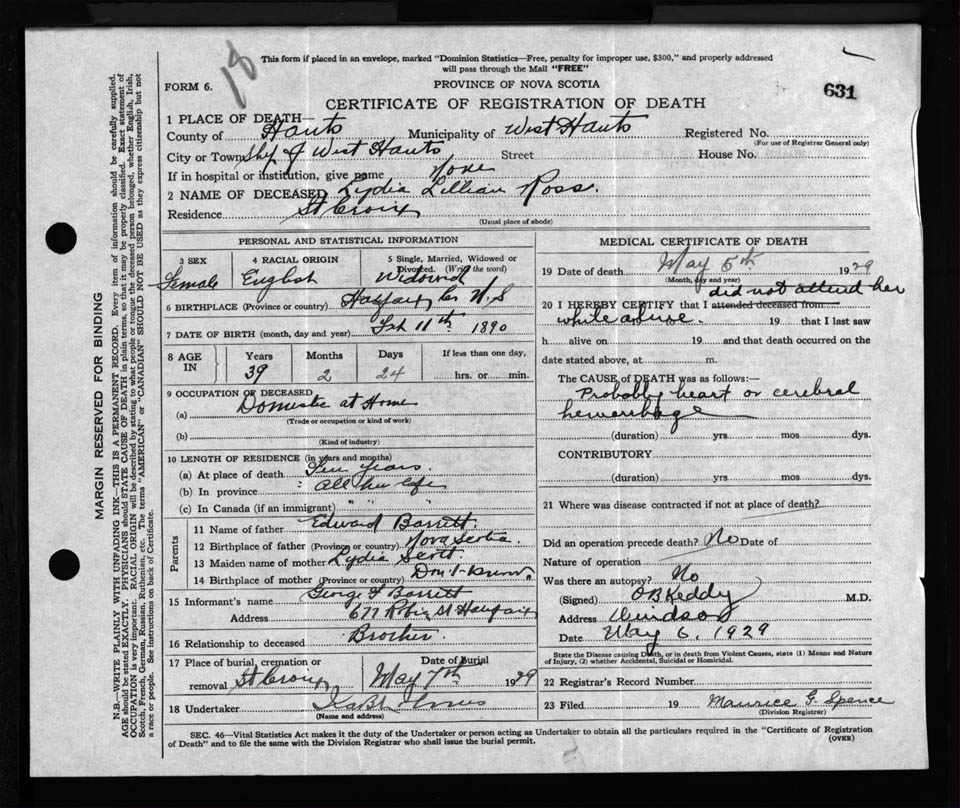 18
This form if placed in an envelope, marked "Dominion Statistics—Free, penalty for improper use, $300," and properly addressed
will pass through the Mail "FREE"
FORM 6.
PROVINCE OF NOVA SCOTIA
631
CERTIFICATE OF REGISTRATION OF DEATH
1 PLACE OF DEATH—
County of Hants Municipality of West Hants Registered No.
(For use of Registrar General only)
City or Town Shp of West Hants Street House No.
If in hospital or institution, give name None
2 NAME OF DECEASED Lydia Lillian Ross.
Residence St Croix
(Usual place of abode)
PERSONAL AND STATISTICAL INFORMATION
3 SEX 4 RACIAL ORIGIN 5 Single, Married, Widowed or Divorced. (Write the word)
Female English Widowed
6 BIRTHPLACE (Province or country) Halifax Co N.S
7 DATE OF BIRTH (month, day and year) Feb 11th 1890
8 AGE IN Years Months Days If less than one day,
39 2 24 hrs. or min.
9 OCCUPATION OF DECEASED
(a) Domestic at Home
(Trade or occupation or kind of work)
(b)
(Kind of industry)
10 LENGTH OF RESIDENCE (in years and months)
(a) At place of death years.
(b) In province All her life
(c) In Canada (if an immigrant) " " "
Parents
11 Name of father Edward Barrett.
12 Birthplace of father (Province or country) Nova Scotia.
13 Maiden name of mother Lydia Scott.
14 Birthplace of mother (Province or country) Don't Know
15 Informant's name George F Barrett
Address 677 Robie St Halifax
16 Relationship to deceased Brother
17 Place of burial, cremation or removal St Croix Date of burial May 7th 1929
18 Undertaker
(Name and address)
MEDICAL CERTIFICATE OF DEATH
19 Date of death May 5th 1929
(Month, day and year)
did not attend her
20 I HEREBY CERTIFY that I attended deceased from
while alive. 19 that I last saw
h alive on 19 and that death occurred on the
date stated above, at m.
The CAUSE of DEATH was as follows:—
Probably heart or cerebral
hemorrhage
(duration) yrs mos dys.
CONTRIBUTORY
(duration) yrs. mos dys.
21 Where was disease contracted if not at place of death?
Did an operation precede death? No Date of
Nature of operation
Was there an autopsy? No
(Signed) O B Keddy M.D.
Address Windsor
Date May 6, 1929
State the Disease causing Death, or in death from Violent Causes, state (1) Means and Nature
of Injury, (2) whether Accidental, Suicidal or Homicidal.
22 Registrar's Record Number
23 Filed 19 Maurice G. Spence
(Division Registrar)
SEC. 46—Vital Statistics Act makes it the duty of the Undertaker or person acting as Undertaker to obtain all the particulars required in the "Certificate of Registration
of Death" and to file the same with the Division Registrar who shall issue the burial permit.
(OVER)
MARGIN RESERVED FOR BINDING
N.B.—WRITE PLAINLY WITH UNFADING INK—THIS IS A PERMANENT RECORD. Every item of information should be carefully supplied.
AGE should be stated EXACTLY. PHYSICIANS should STATE CAUSE OF DEATH in plain terms, so that it may be properly classified. Exact statement of
OCCUPATION is very important. RACIAL ORIGIN will be described by stating to what people or tongue the deceased person belonged, whether English, Irish,
Scotch, French, German, Russian, Ruthenian, etc. The terms "AMERICAN" or "CANADIAN" SHOULD NOT BE USED as they express citizenship but not
a race or people. See instructions on back of Certificate.